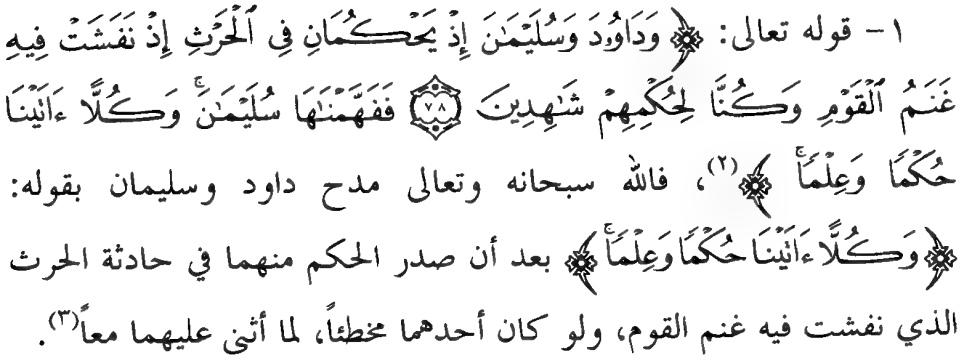 ١- قوله تعالى: ﴿ وَدَاوُۥدَ وَسُلَيْمَٰنَ إِذْ يَحْكُمَانِ فِي ٱلْحَرْثِ إِذْ نَفَشَتْ فِيهِ
غَنَمُ ٱلْقَوْمِ وَكُنَّا لِحُكْمِهِمْ شَٰهِدِينَ ﴿٧٨﴾ فَفَهَّمْنَٰهَا سُلَيْمَٰنَۚ وَكُلًّا ءَاتَيْنَا
حُكْمًا وَعِلْمًاۚ ﴾(٢)، فالله سبحانه وتعالى مدح داود وسليمان بقوله:
﴿ وَكُلًّا ءَاتَيْنَا حُكْمًا وَعِلْمًاۚ ﴾ بعد أن صدر الحكم منهما في حادثة الحرث
الذي نفشت فيه غنم القوم، ولو كان أحدهما مخطئاً، لما أثنى عليهما معاً(٣).